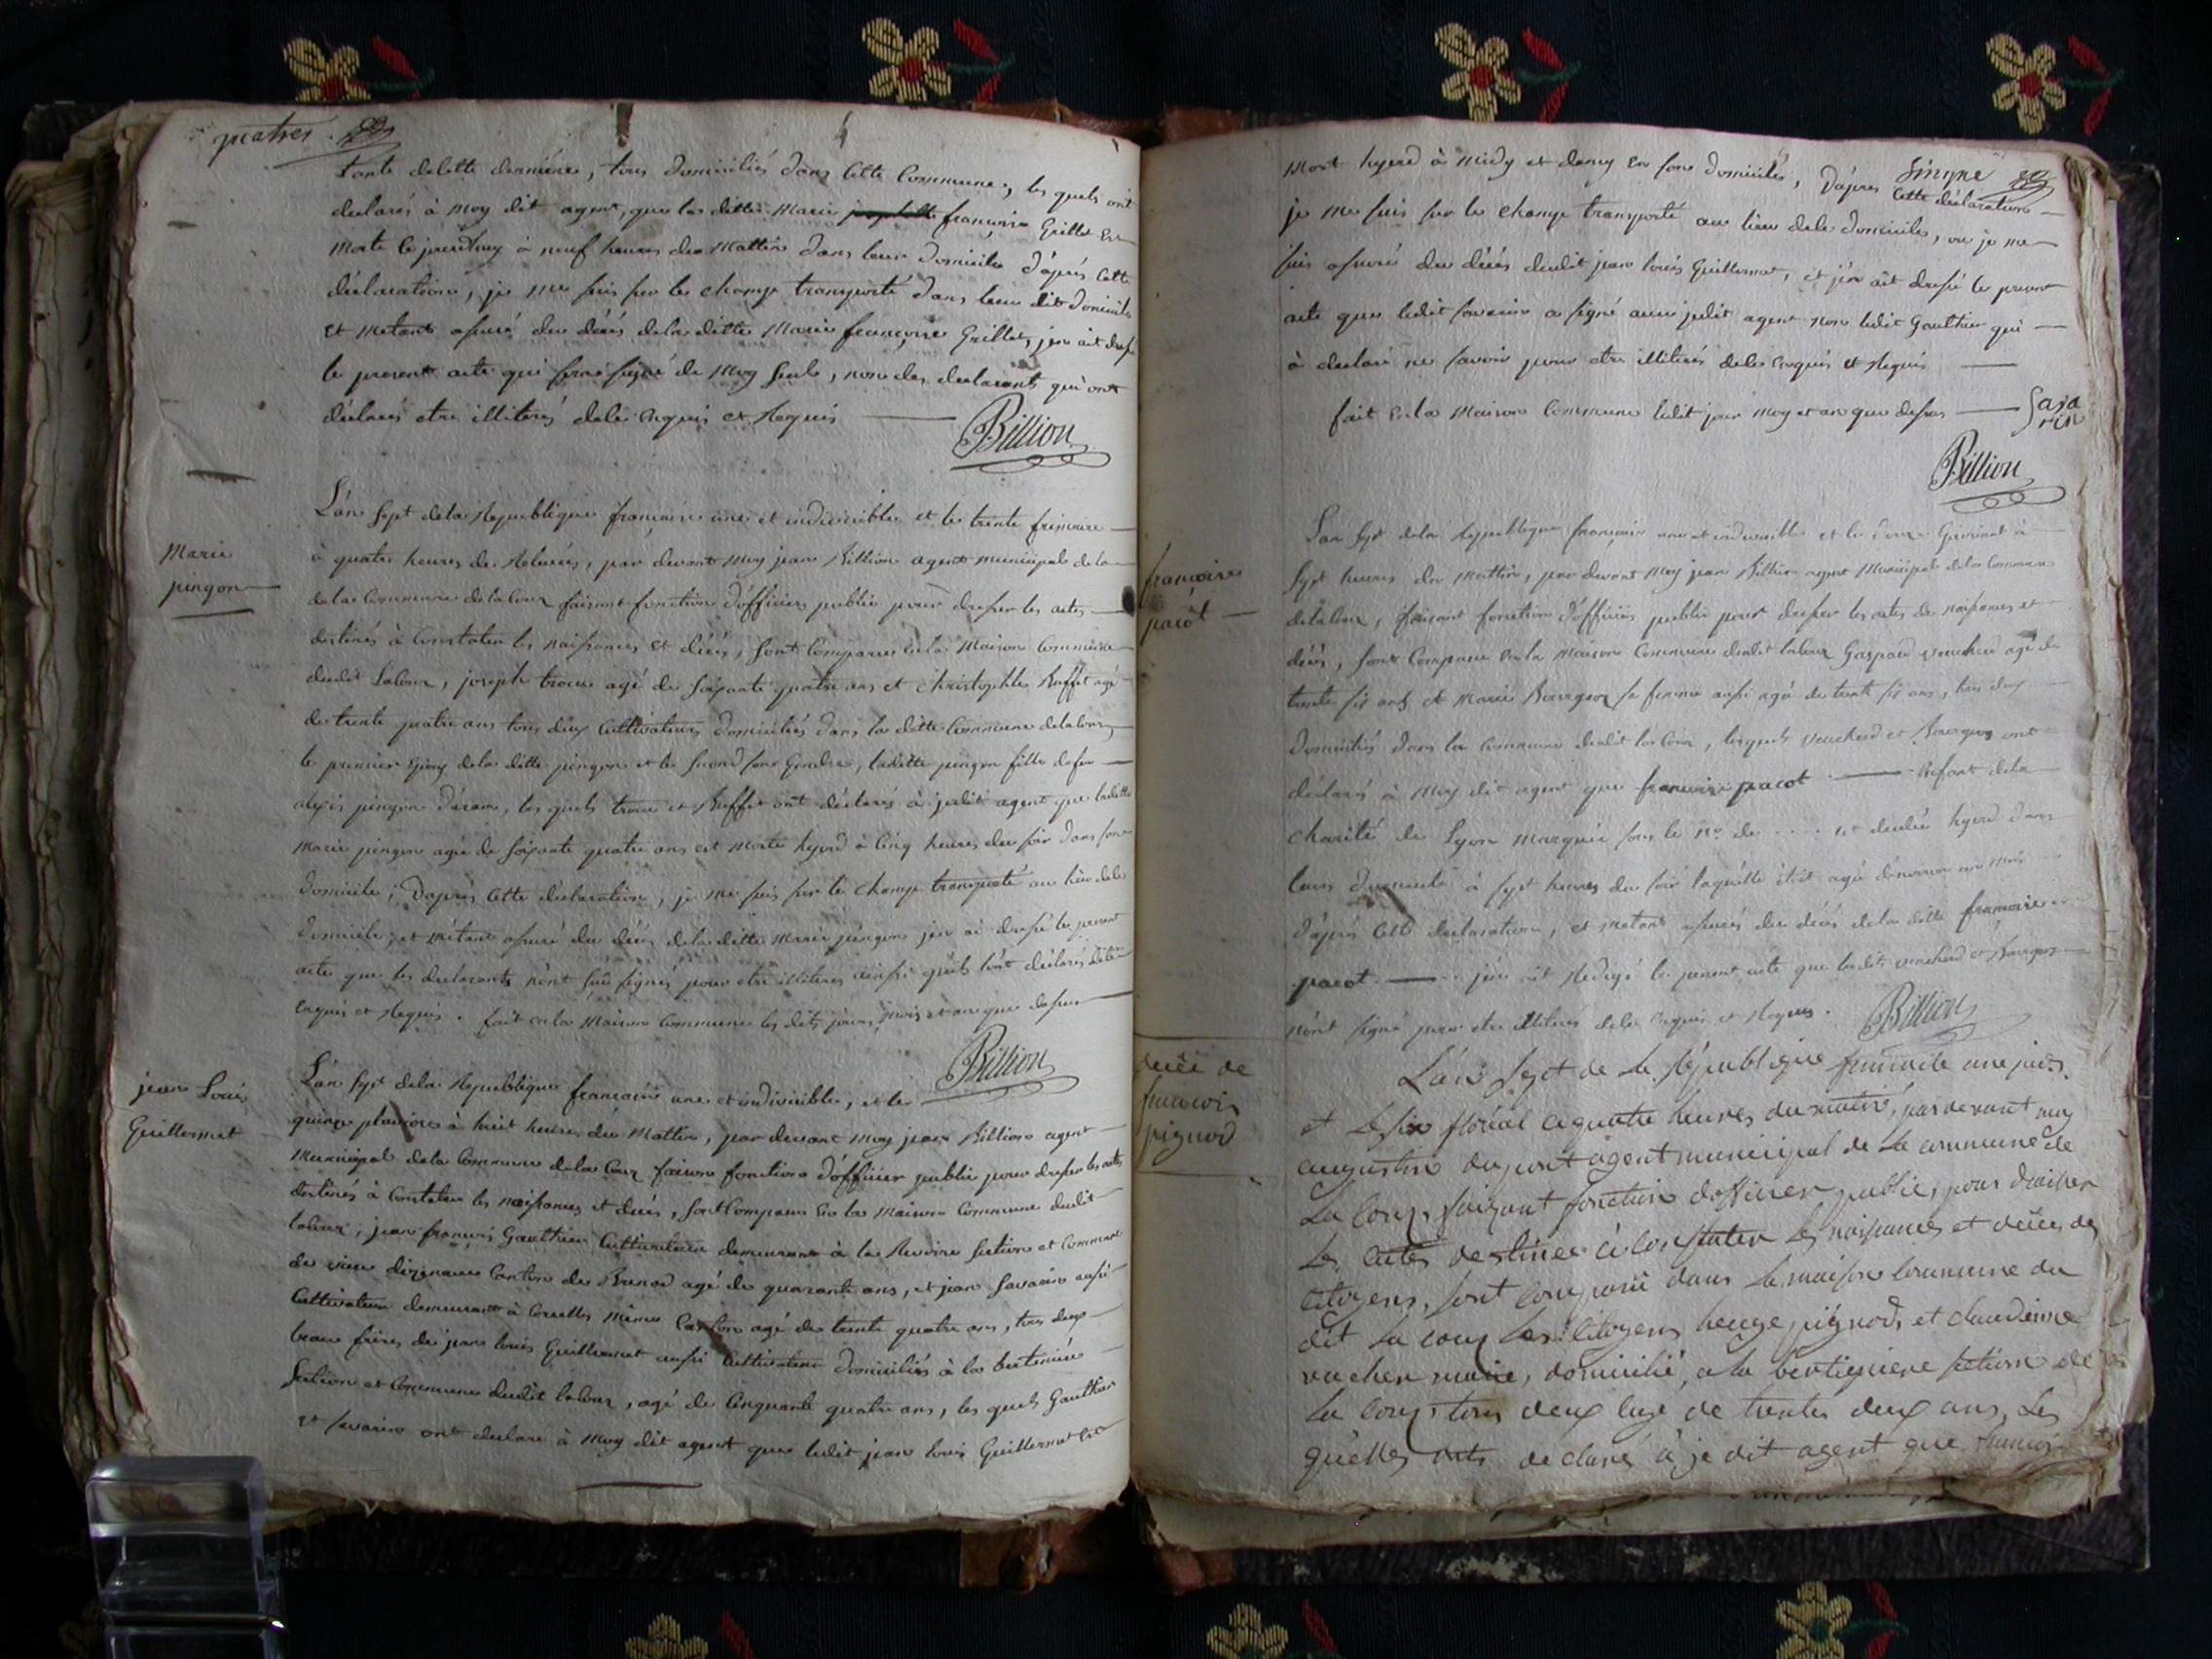 quatres.
4
tante de lette dernière, tous domiciliés dans cette Commune, les quels ont
declarés à moy dit agent, que la ditte Marie françoise Grillet est
morte ce jourdhuy à neuf heures du Mattin dans leur domicile d'aprés cette
déclaration, je me suis sur le champ transporté dans leur dit domicile
et metant assuré du décés dela ditte Marie françoise Grillet, j'en ait dressé
le present acte qui sera signé de Moy seul, non des declarants qui ont
déclarés etre illiterés dele enquis et Requis
Billion
Marie
pingon
L'an sept dela Republique française une et indivisible et le trente frimaire
à quatre heures de Relevées, par devant Moy jean Billion agent municipal de la
de la Commune delaCour faisant fonction d'officier public pour dresser les actes
destinés à Constater les naissances et décés, sont Comparus en la Maison Commune
dudit laCour, joseph agé de soixante quatre ans et christophle Buffet agé
de trente quatre ans tous deux Cultivateurs domiciliés dans la ditte Commune delaCour,
le premier de la ditte pingon et le second son Gendre, laditte pingon fille de feu
alexis pingon , les quels et Buffet ont déclarés à jedit agent que laditte
Marie pingon agée de soixante quatre ans est Morte hyerd à Cinq heures du soir dans son
domicile; D'aprés Cette déclaration, je me suis sur le champ transporté au lieu dele
domicile, et métant assuré du décés dela ditte Marie pingon j'en ai dressé le present
acte que les declarants n'ont sçu signés pour etre illiteres ainsi qu'ils l'ont déclarés dele
enquis et Requis. fait en la Maison Commune les dits jours, mois et an que dessus
Billion
jean Louis
Guillermet
L'an sept dela Republique française une et indivisible, et le
quinze pluviose à huit heures du Mattin, par devant Moy jean Billion agent
Municipal dela Commune dela Cour faison fonction d'officier public pour dresser les actes
destinés à Constater les naissances et décés, sont Comparus en la Maison Commune dudit
laCour, jean françois Gauthier Cultivateur demeurant à la Revoire section et Commune
de vieu dizenave Canton de Brenod agé de quarante ans, et jean Savarin aussi
Cultivateur demeurant à Corcelles même Canton agé de trente quatre ans, tous deux
beau frères de jean louis Guillermet aussi Cultivateur domiciliés à la bertinière
Section et Commune dudit laCour, agé de Cinquante quatre ans, les quels Gauthier
et Savarin ont declaré à Moy dit agent que ledit jean louis Guillermet est
Sinqne
Mort hyerd à Midy et demy en son domicile, D'aprés Cette déclaration
je me suis sur le champ transporté au lieu dele domicile, ou je me
suis assuré du décés dudit jean louis Guillermet, et j'en ait dressé le present
acte que ledit savarin a signé avec jedit agent non ledit Gauthier qui
à declaré ne savoir pour etre illiterés dele enquis et Requis
fait en la Maison Commune ledit jour Moy et an que dessus
Sava
rin
Billion
françoise
pacot
L'an sept dela Republique française une et indivisible et le douze Germinal à
Sept heures du Mattin, par devant Moy jean Billion agent Municipal dela Commune
delaCour, faisant fonction d'officier public pour dresser les actes de naissances et
décés, sont Comparus en la Maison Commune dudit laCour Gaspard vouchard agé de
trente six ans et Marie Bourgeos sa femme aussi agé de trente six ans, tous deux
domiciliés dans la Commune dudit laCour, lesquels vouchard et Bourgeos ont
déclarés à Moy dit agent que françoise pacot enfant dela
charité de Lyon Marquée sous le No. de .... est decedée hyerd dans
leurs domicile à sept heures du soir laquelle étoit agé d'environ un mois
d'aprés Cette declaration, et metant assurés du décés dela ditte françoise
pacot j'en ait Redigé le present acte que ledits vouchard et Bourgeos
n'ont signé pour etre illiteres dele enquis et Requis.
Billion
decêi de
francois
pignod
L'an sept de la République francaise une indi.
et le six floréal a quatre heures du matin, par devant moy
augustin dupont agent municipal de la commune de
La Cour, faisant fonction dofficier public, pour draisser
les actes destinés à constater les naissances et décès des
citoyens, sont comparu dans la maison commune du
dit La cour les citoyens pignod et claudine
vacher marie, domicilié, a la bertigniere section de
La cour, tous deux age de trentes deux ans, les
quelles onts declaré à je dit agent que francoi